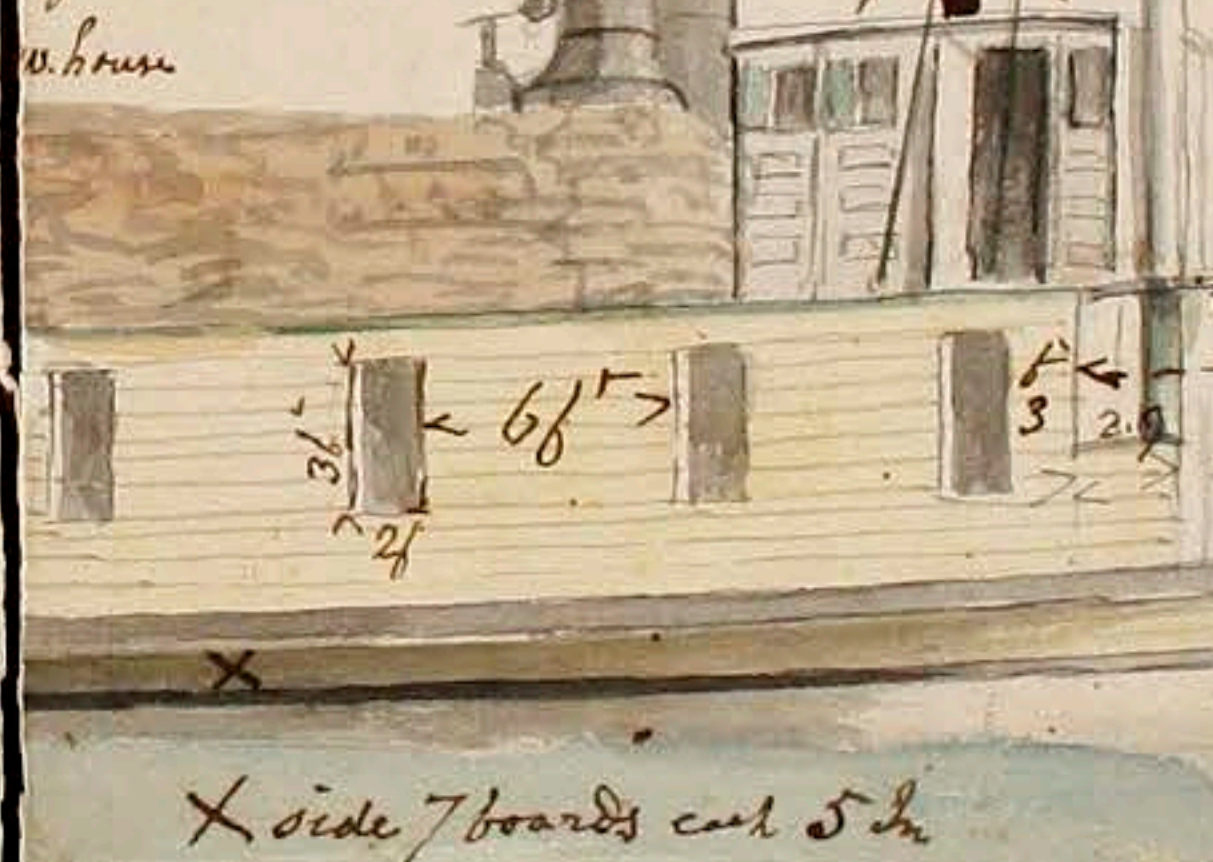 w. house
6f
3f
3
2.9
2f
X
X side 7 boards each 5 In